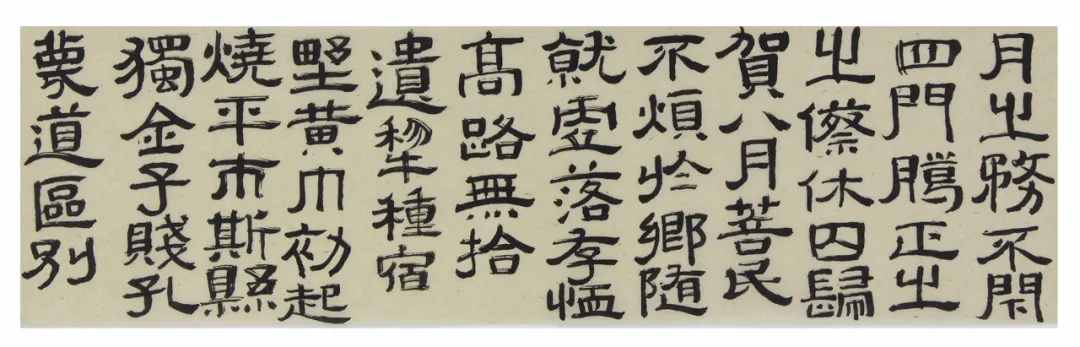 月之務不閇
四門騰正之
之傺休囚歸
賀八月菩民
不煩於鄉随
就虛落存恤
高路無拾
遺犂種宿
野黃巾初起
燒平市斯縣
獨金子賤孔
蔑道區別